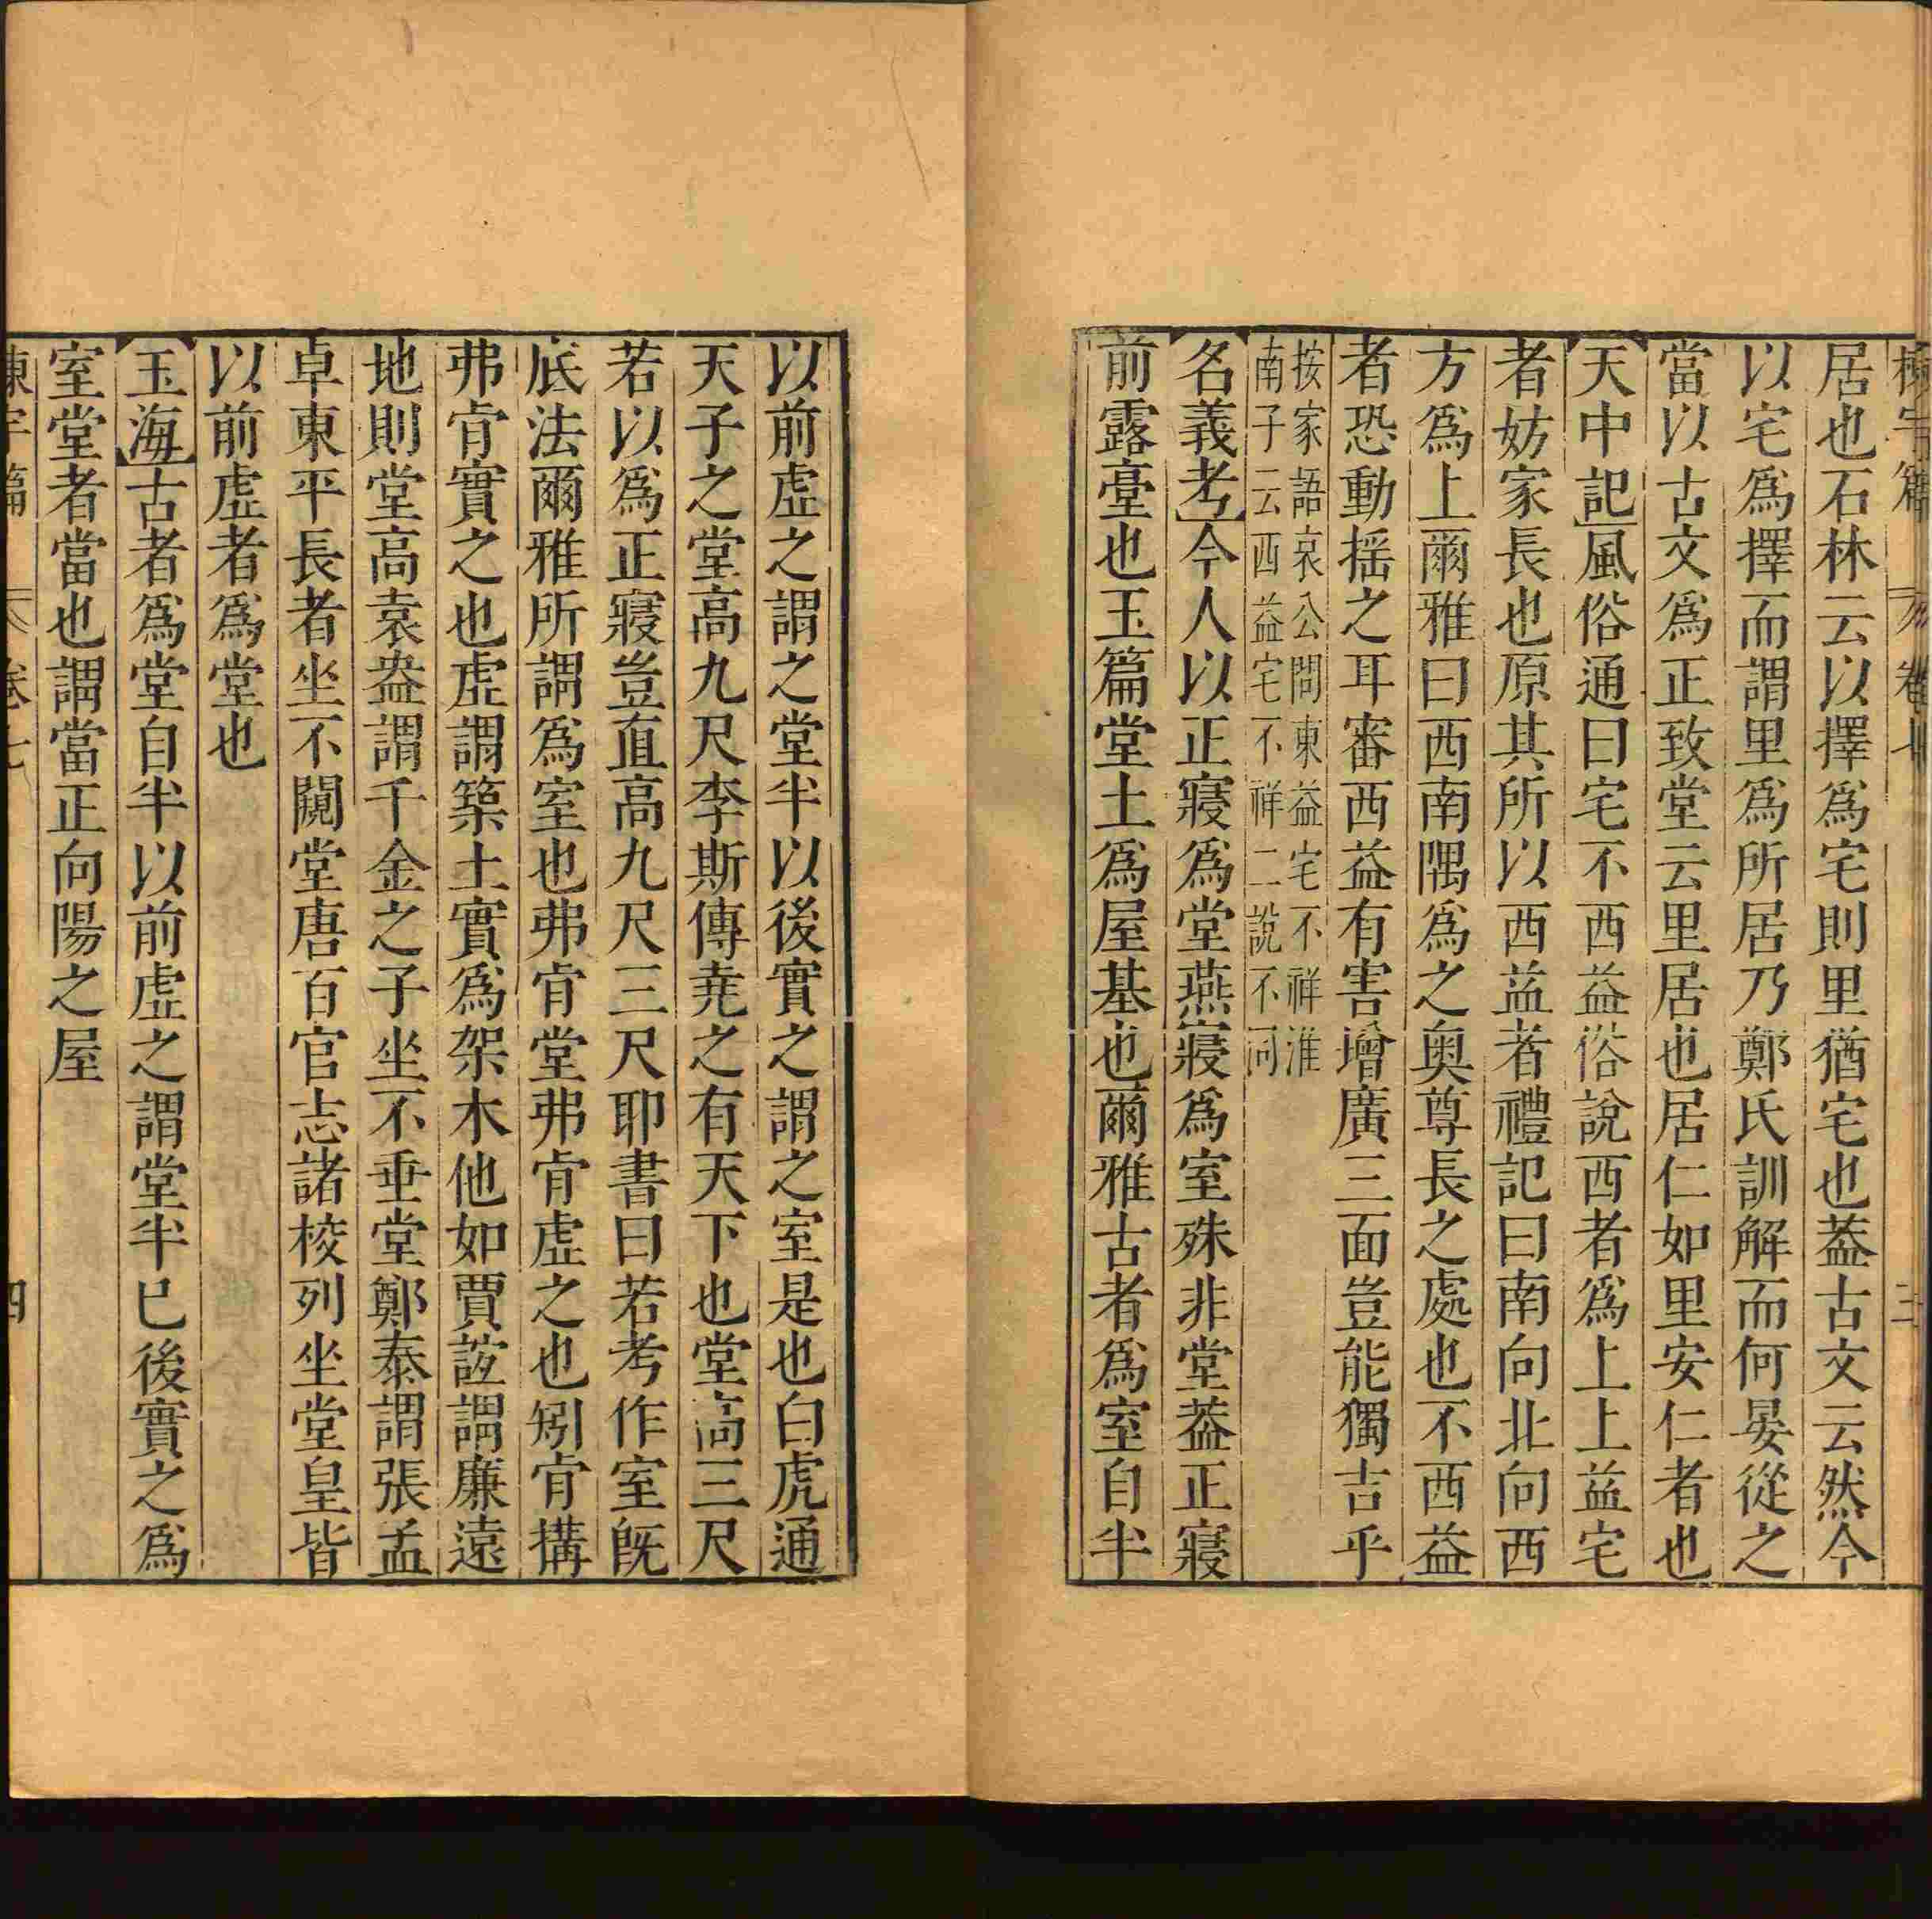 居也石林云以擇爲宅則里猶宅也葢古文云然今
以宅爲擇而謂里爲所居乃鄭氏訓解而何晏從之
當以古文爲正致堂云里居也居仁如里安仁者也
天中記風俗通曰宅不西益俗說西者爲上上益宅
者妨家長也原其所以西益者禮記曰南向北向西
方爲上爾雅曰西南隅爲之奥尊長之處也不西益
者恐動揺之耳審西益有害增廣三面豈能獨吉乎
按家語哀公問東益宅不祥淮
南子云西益宅不祥二說不同
名義考今人以正寢爲堂燕寢爲室殊非堂葢正寢
前露臺也玉篇堂土爲屋基也爾雅古者爲室自半
以前虛之謂之堂半以後實之謂之室是也白虎通
天子之堂高九尺李斯傳堯之有天下也堂高三尺
若以爲正寢豈直高九尺三尺耶書曰若考作室旣
底法爾雅所謂爲室也弗肯堂弗肯虛之也矧肯搆
弗肯實之也虛謂築土實爲架木他如賈誼謂廉遠
地則堂高袁盎謂千金之子坐不垂堂鄭泰謂張孟
卓東平長者坐不闚堂唐百官志諸校列坐堂皇皆
以前虛者爲堂也
玉海古者爲堂自半以前虛之謂堂半已後實之爲
室堂者當也謂當正向陽之屋
字篇 卷七 四